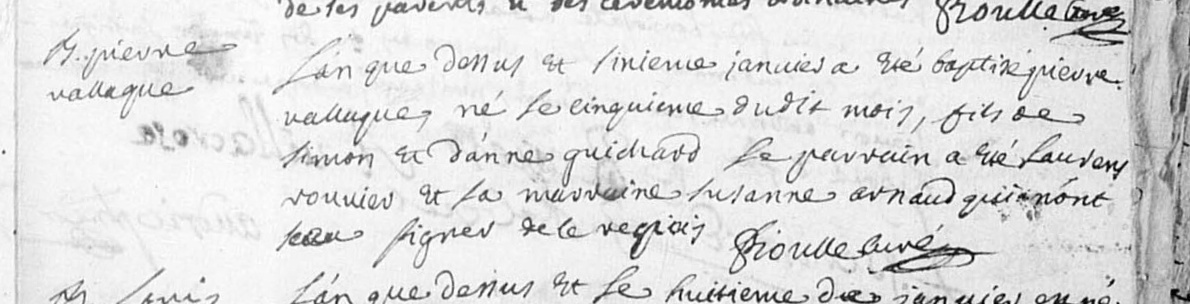 de ses parents et des ceremonies ordinaires Fioulle Curé
B. pierre
vallaque
L'an que dessus et sixieme janvier a été baptisé pierre
vallaque, né le cinquieme dudit mois, fils de
simon et d'anne guichard le parrain a été Laurens
rouvier et la marraine susanne arnaud qui n'ont
sceu signer de le requis Fioulle curé
B. Louis
L'an que dessus et le huitieme de janvier